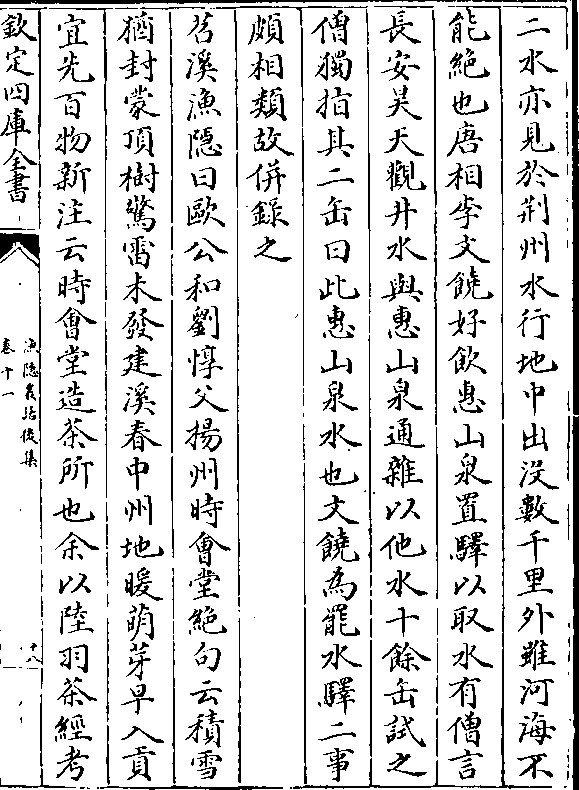 二水亦見於荆州水行地中出没數千里外雖河海不
能絶也唐相李文饒好飲惠山泉置驛以取水有僧言
長安昊天觀井水與惠山泉通雜以他水十餘缶試之
僧獨指其二缶曰此惠山泉水也文饒為罷水驛二事
頗相類故併録之
苕溪漁隱曰歐公和劉惇父揚州時會堂絶句云積雪
猶封蒙頂樹驚雷未發建溪春中州地暖萌芽早入貢
宜先百物新注云時會堂造茶所也余以陸羽茶經考
欽定四庫全書
漁隱叢話後集
卷十一
十八